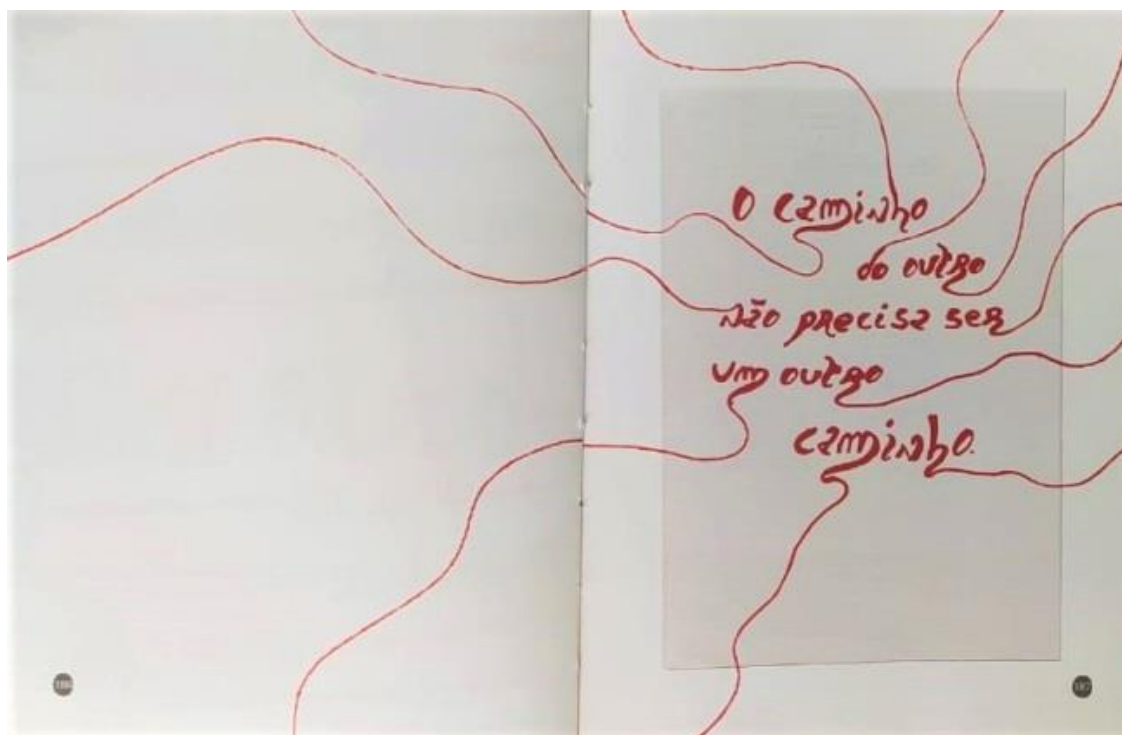 O caminho
do outro
não precisa ser
um outro
caminho.